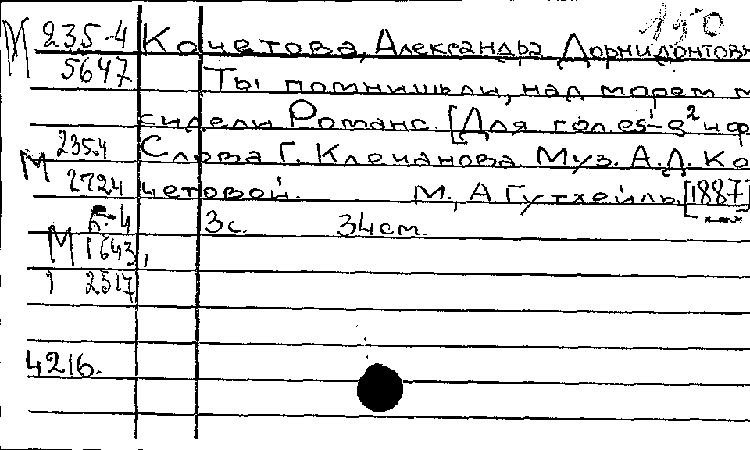 190
М 235-4 Кочетова, Александра Дормидонтовн
5647 Ты помнишь ли, над морем м
сидели Романс. [Для гол. es¹-g² и ф
235-4 Слова Г. Клечанова Муз. А.Д. Ко
М 2724 четовой. М., А Гутхейль, [1887]
Б-4 3с. 34см.
М 1643,
1 2517
4216.